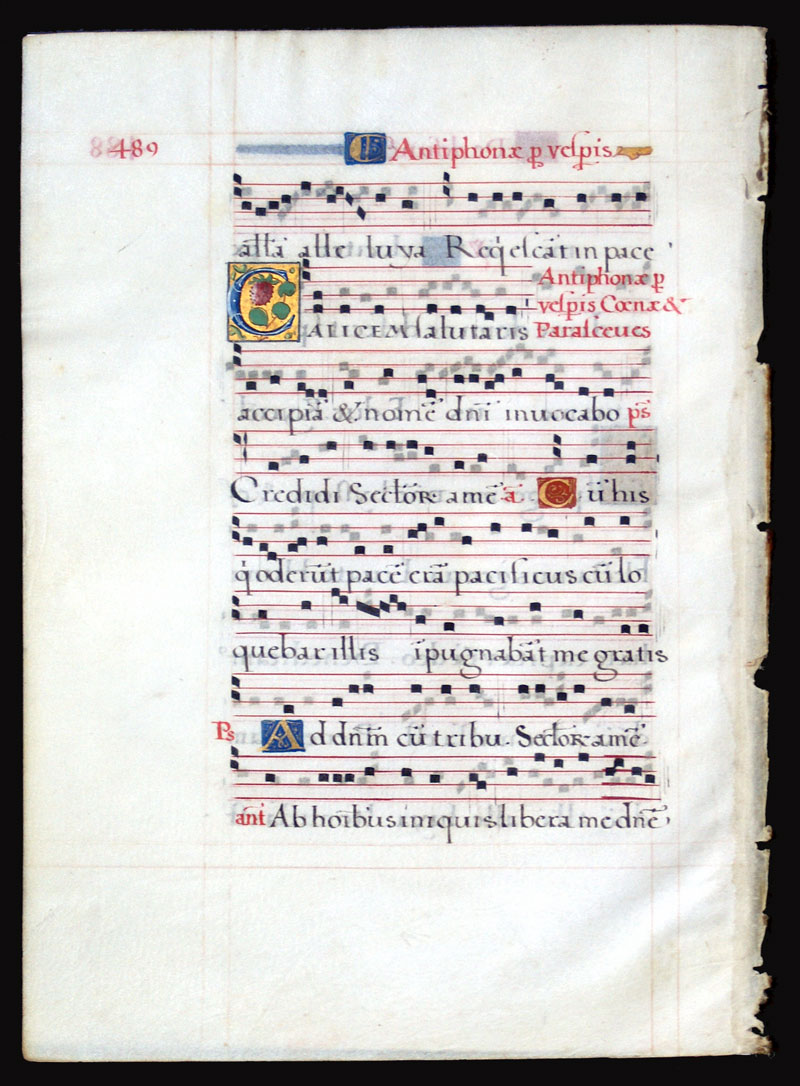 489 Antiphonæ p̱ vesp̱is
all̃a alle luya Req̇escãt in pace
Antiphonæ p̱
vesp̱is Cœnæ &
CALICEM salutaris Parasceues
accipiã & nomẽ dñi inuocabo p̃s
Credidi Sectõr amẽ ã Cũ his
q̇ oderũt pacẽ erã pacificus cũ lo
quebar illis ĩpugnabãt me gratis
Ps Ad dñm cũ tribu. Sectõr amẽ.
añt Ab hoĩbus iniquis libera me dñe